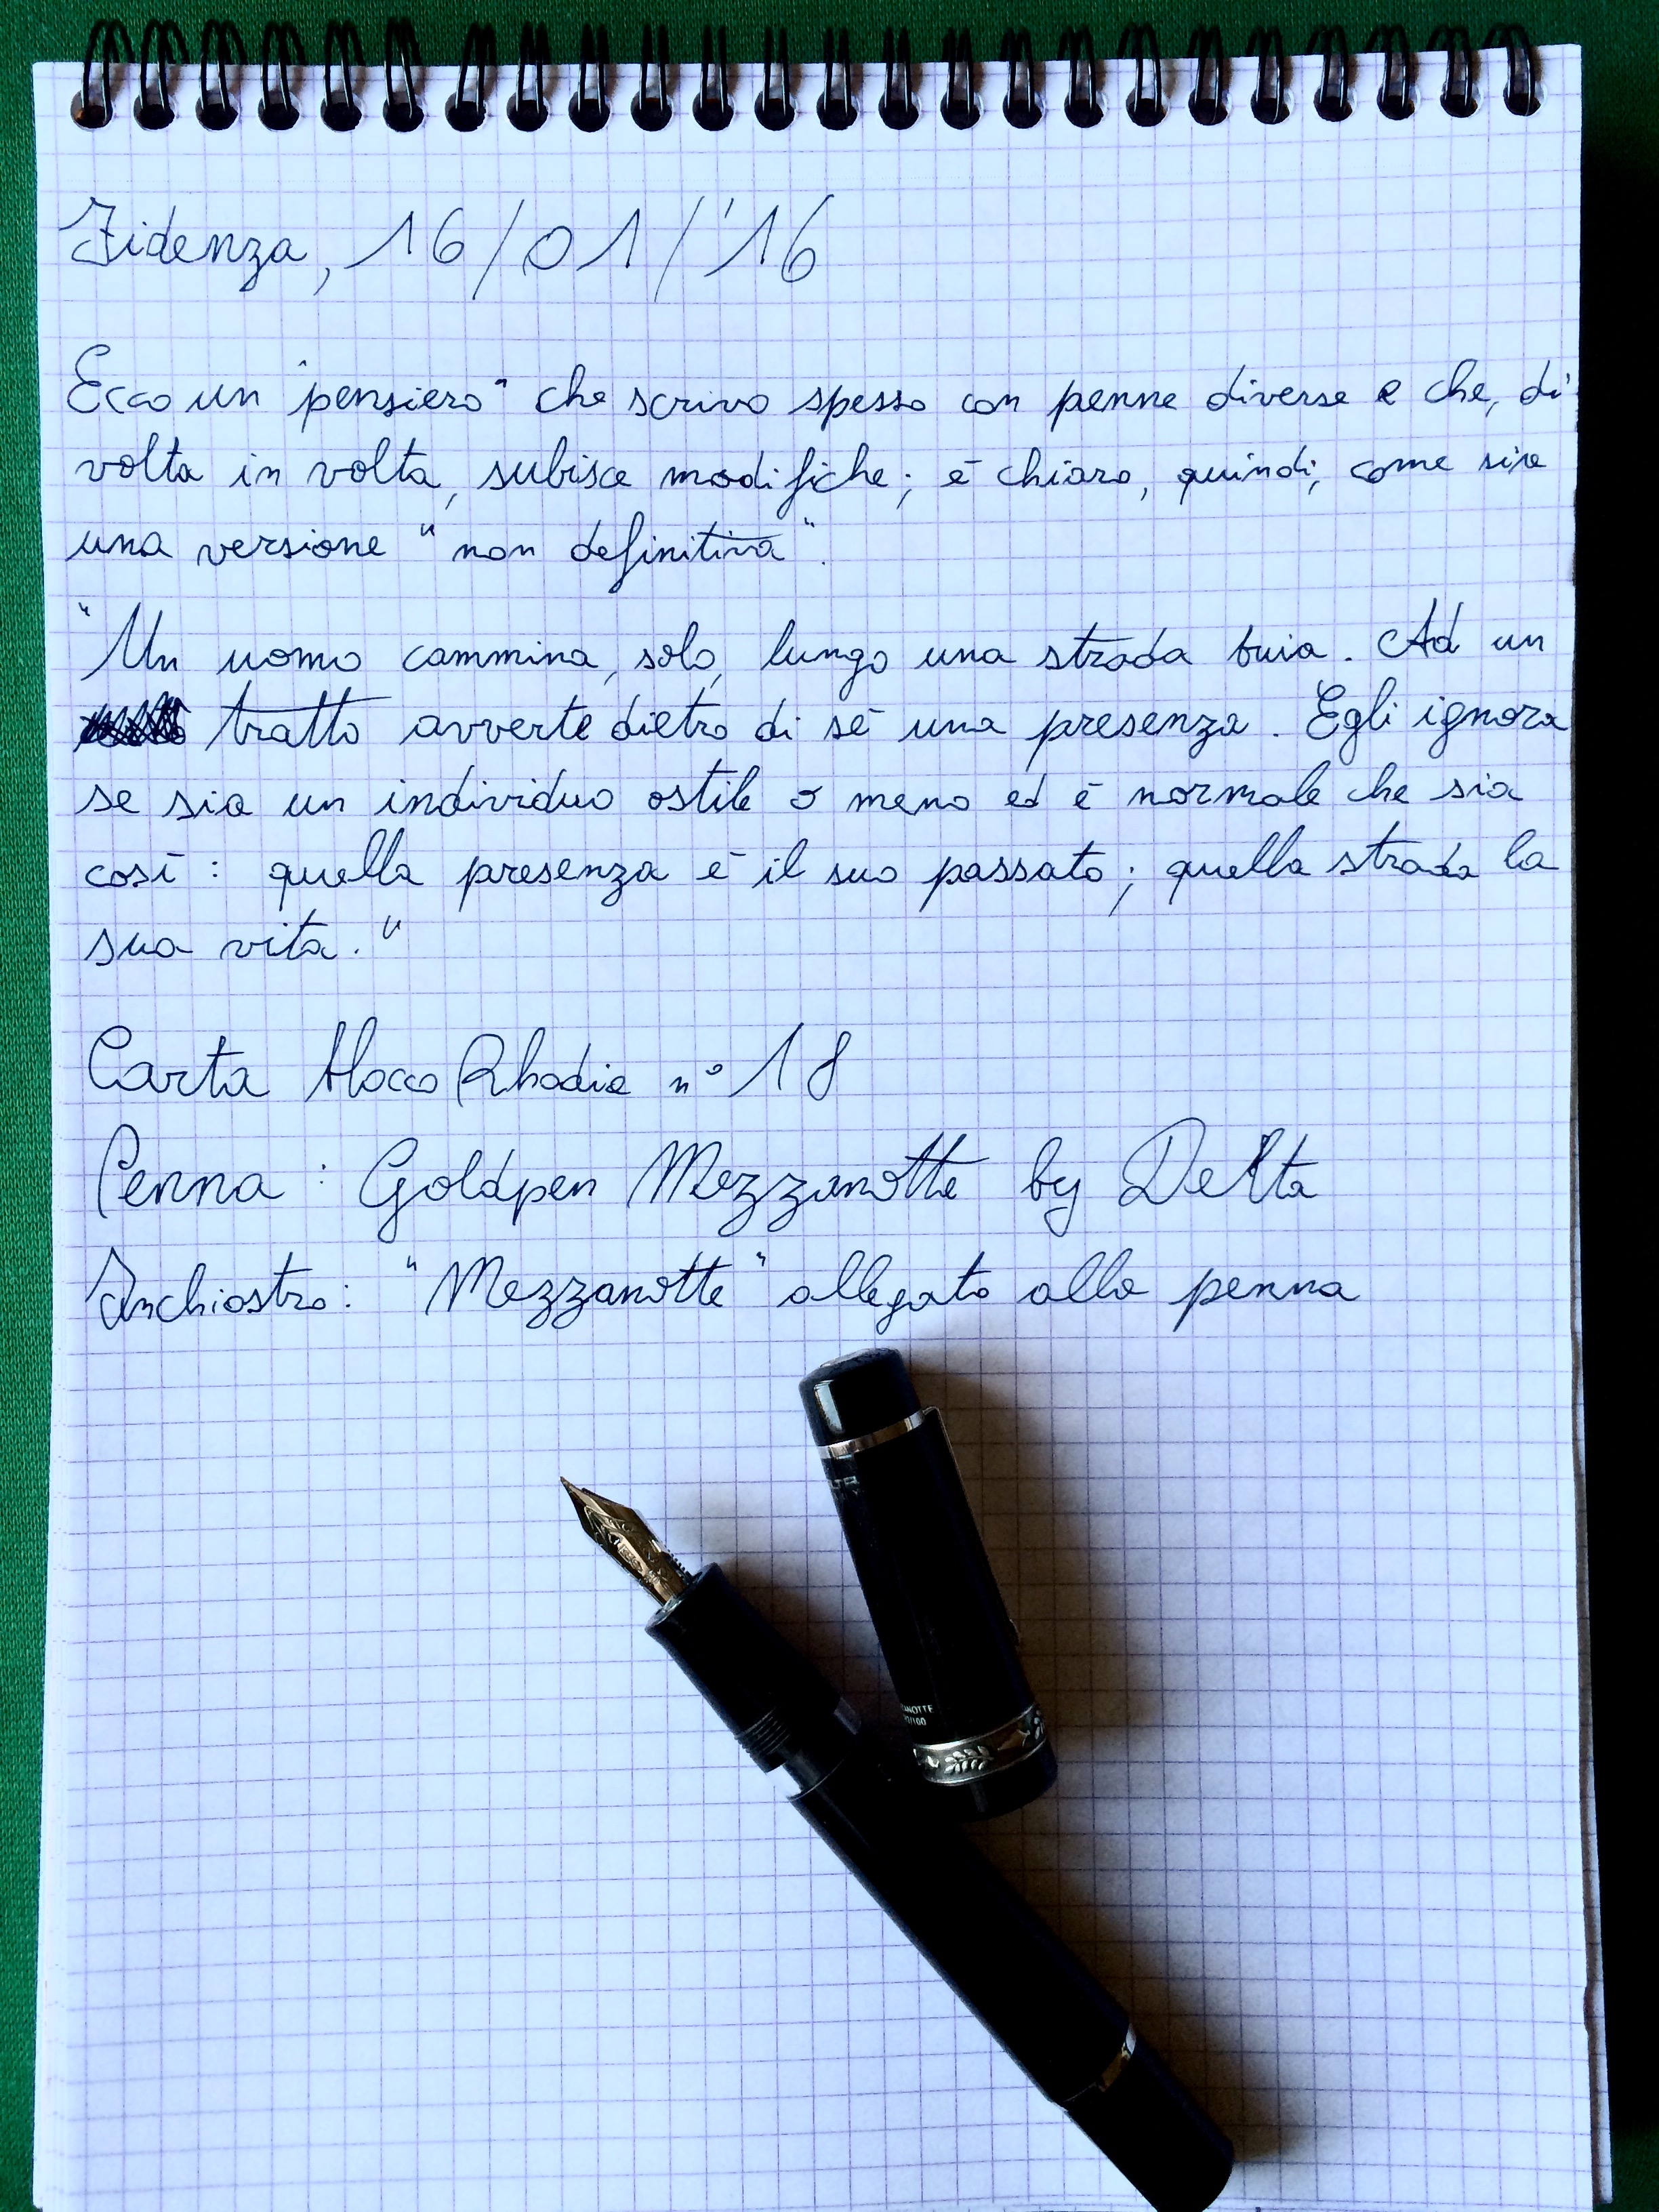 Fidenza, 16/01/'16
Ecco un "pensiero" che scrivo spesso con penne diverse e che, di
volta in volta, subisce modifiche; è chiaro, quindi, come sia
una versione "non definitiva".
"Un uomo cammina, solo, lungo una strada buia. Ad un
tratto avverte dietro di sé una presenza. Egli ignora
se sia un individuo ostile o meno ed è normale che sia
così: quella presenza è il suo passato; quella strada la
sua vita."
Carta blocco Rhodia n° 18
Penna: Goldpen Mezzanotte by Delta
Inchiostro: "Mezzanotte" allegato alla penna